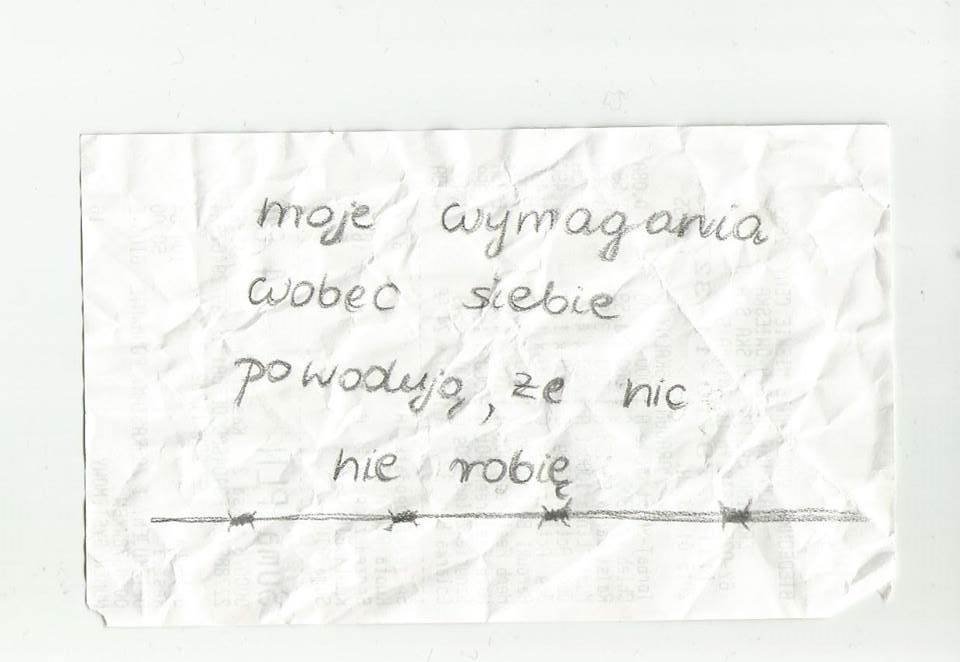 moje wymagania
wobec siebie
powodują, że nic
nie robię